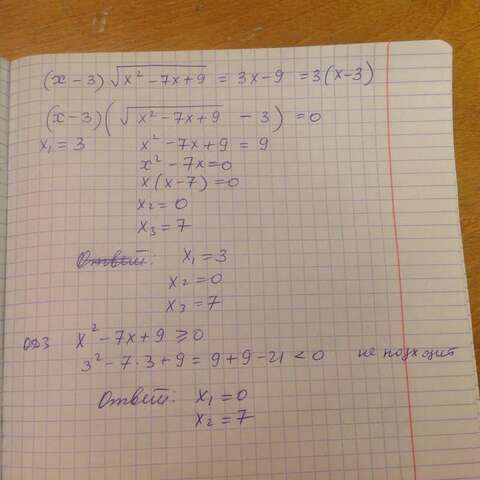 (x-3)√(x²-7x+9) = 3x-9 = 3(x-3)
(x-3)(√(x²-7x+9) - 3) = 0
x₁ = 3 x² - 7x + 9 = 9
x² - 7x = 0
x(x-7) = 0
x₂ = 0
x₃ = 7
Ответ: x₁ = 3
x₂ = 0
x₃ = 7
ОДЗ x² - 7x + 9 ≥ 0
3² - 7·3 + 9 = 9 + 9 - 21 < 0 не подходит
Ответ: x₁ = 0
x₂ = 7